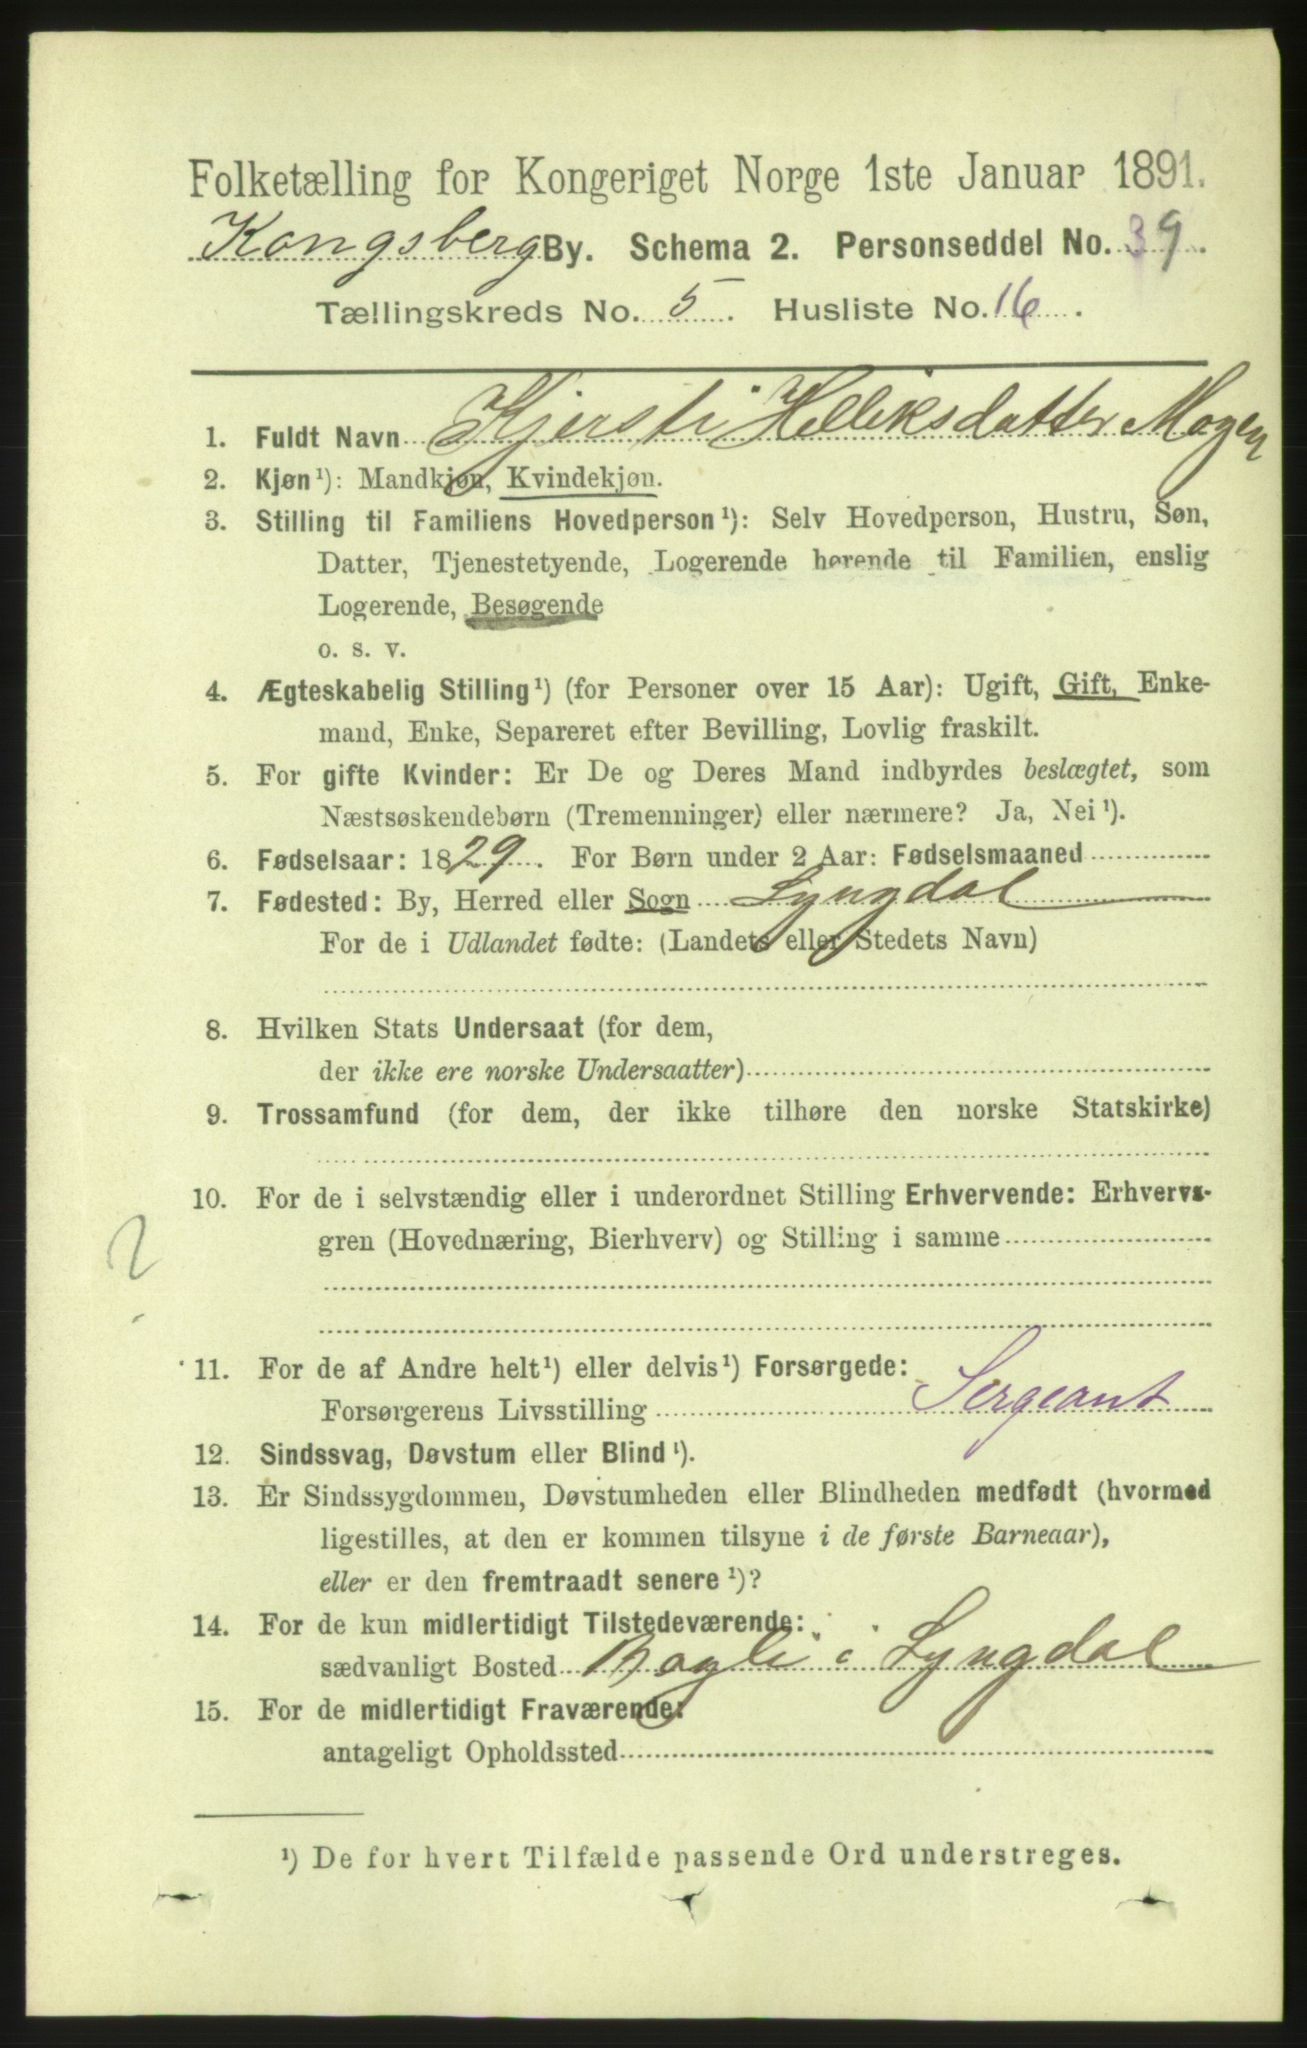 Folketælling for Kongeriget Norge 1ste Januar 1891.
Kongsberg By. Schema 2. Personseddel No. 39.
Tællingskreds No. 5. Husliste No. 16.
1. Fuldt Navn Kjersti Helliksdatter Mogen
2. Kjøn¹): Mandkjøn, Kvindekjøn.
3. Stilling til Familiens Hovedperson¹): Selv Hovedperson, Hustru, Søn,
Datter, Tjenestetyende, Logerende hørende til Familien, enslig
Logerende, Besøgende
o. s. v.
4. Ægteskabelig Stilling¹) (for Personer over 15 Aar): Ugift, Gift, Enke-
mand, Enke, Separeret efter Bevilling, Lovlig fraskilt.
5. For gifte Kvinder: Er De og Deres Mand indbyrdes beslægtet, som
Næstsøskendebørn (Tremenninger) eller nærmere? Ja, Nei¹).
6. Fødselsaar: 1829. For Børn under 2 Aar: Fødselsmaaned
7. Fødested: By, Herred eller Sogn Lyngdal
For de i Udlandet fødte: (Landets eller Stedets Navn)
8. Hvilken Stats Undersaat (for dem,
der ikke ere norske Undersaatter)
9. Trossamfund (for dem, der ikke tilhøre den norske Statskirke)
10. For de i selvstændig eller i underordnet Stilling Erhvervende: Erhvervs-
gren (Hovednæring, Bierhverv) og Stilling i samme
?
11. For de af Andre helt¹) eller delvis¹) Forsørgede:
Forsørgerens Livsstilling Sergeant
12. Sindssvag, Døvstum eller Blind¹).
13. Er Sindssygdommen, Døvstumheden eller Blindheden medfødt (hvormed
ligestilles, at den er kommen tilsyne i de første Barneaar),
eller er den fremtraadt senere¹)?
14. For de kun midlertidigt Tilstedeværende:
sædvanligt Bosted Bogli i Lyngdal
15. For de midlertidigt Fraværende:
antageligt Opholdssted
¹) De for hvert Tilfælde passende Ord understreges.